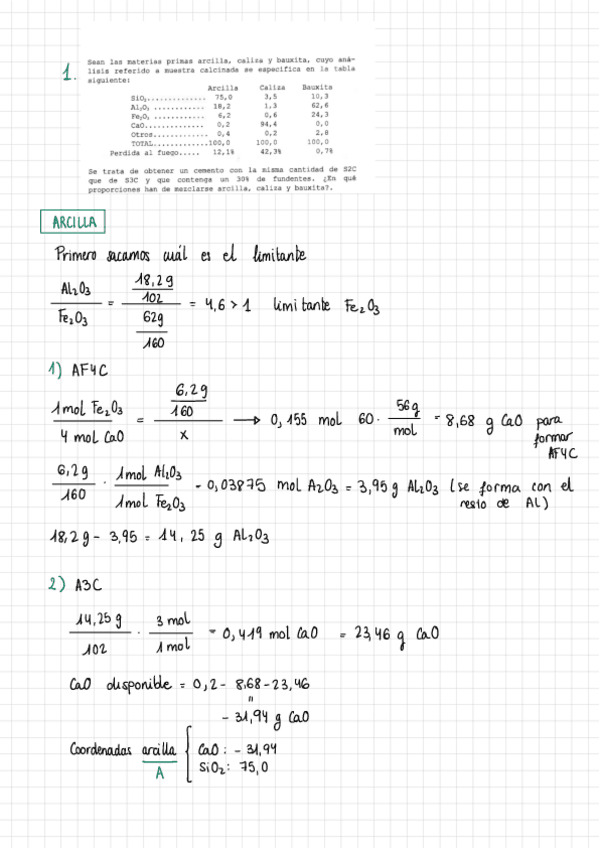 1.
Sean las materias primas arcilla, caliza y bauxita, cuyo aná-
lisis referido a muestra calcinada se especifica en la tabla
siguiente:
Arcilla Caliza Bauxita
SiO₂.............. 75,0 3,5 10,3
Al₂O₃ ............ 18,2 1,3 62,6
Fe₂O₃ ............ 6,2 0,6 24,3
CaO............... 0,2 94,4 0,0
Otros............. 0,4 0,2 2,8
TOTAL.............100,0 100,0 100,0
Perdida al fuego..... 12,1% 42,3% 0,7%
Se trata de obtener un cemento con la misma cantidad de S2C
que de S3C y que contenga un 30% de fundentes. ¿En qué
proporciones han de mezclarse arcilla, caliza y bauxita?.
ARCILLA
Primero sacamos cuál es el limitante
Al₂O₃ / Fe₂O₃ = (18,2g / 102) / (62g / 160) = 4,6 > 1 limitante Fe₂O₃
1) AF4C
1 mol Fe₂O₃ / 4 mol CaO = (6,2g / 160) / x → 0,155 mol 60 · 56g / mol = 8,68 g CaO para formar AF4C
6,2g / 160 · 1 mol Al₂O₃ / 1 mol Fe₂O₃ = 0,03875 mol A2O₃ = 3,95 g Al₂O₃ (se forma con el resto de AL)
18,2g - 3,95 = 14,25 g Al₂O₃
2) A3C
14,25 g / 102 · 3 mol / 1 mol = 0,419 mol CaO = 23,46 g CaO
CaO disponible = 0,2 - 8,68 - 23,46
"
- 31,94 g CaO
Coordenadas arcilla { CaO : - 31,94
A SiO₂: 75,0